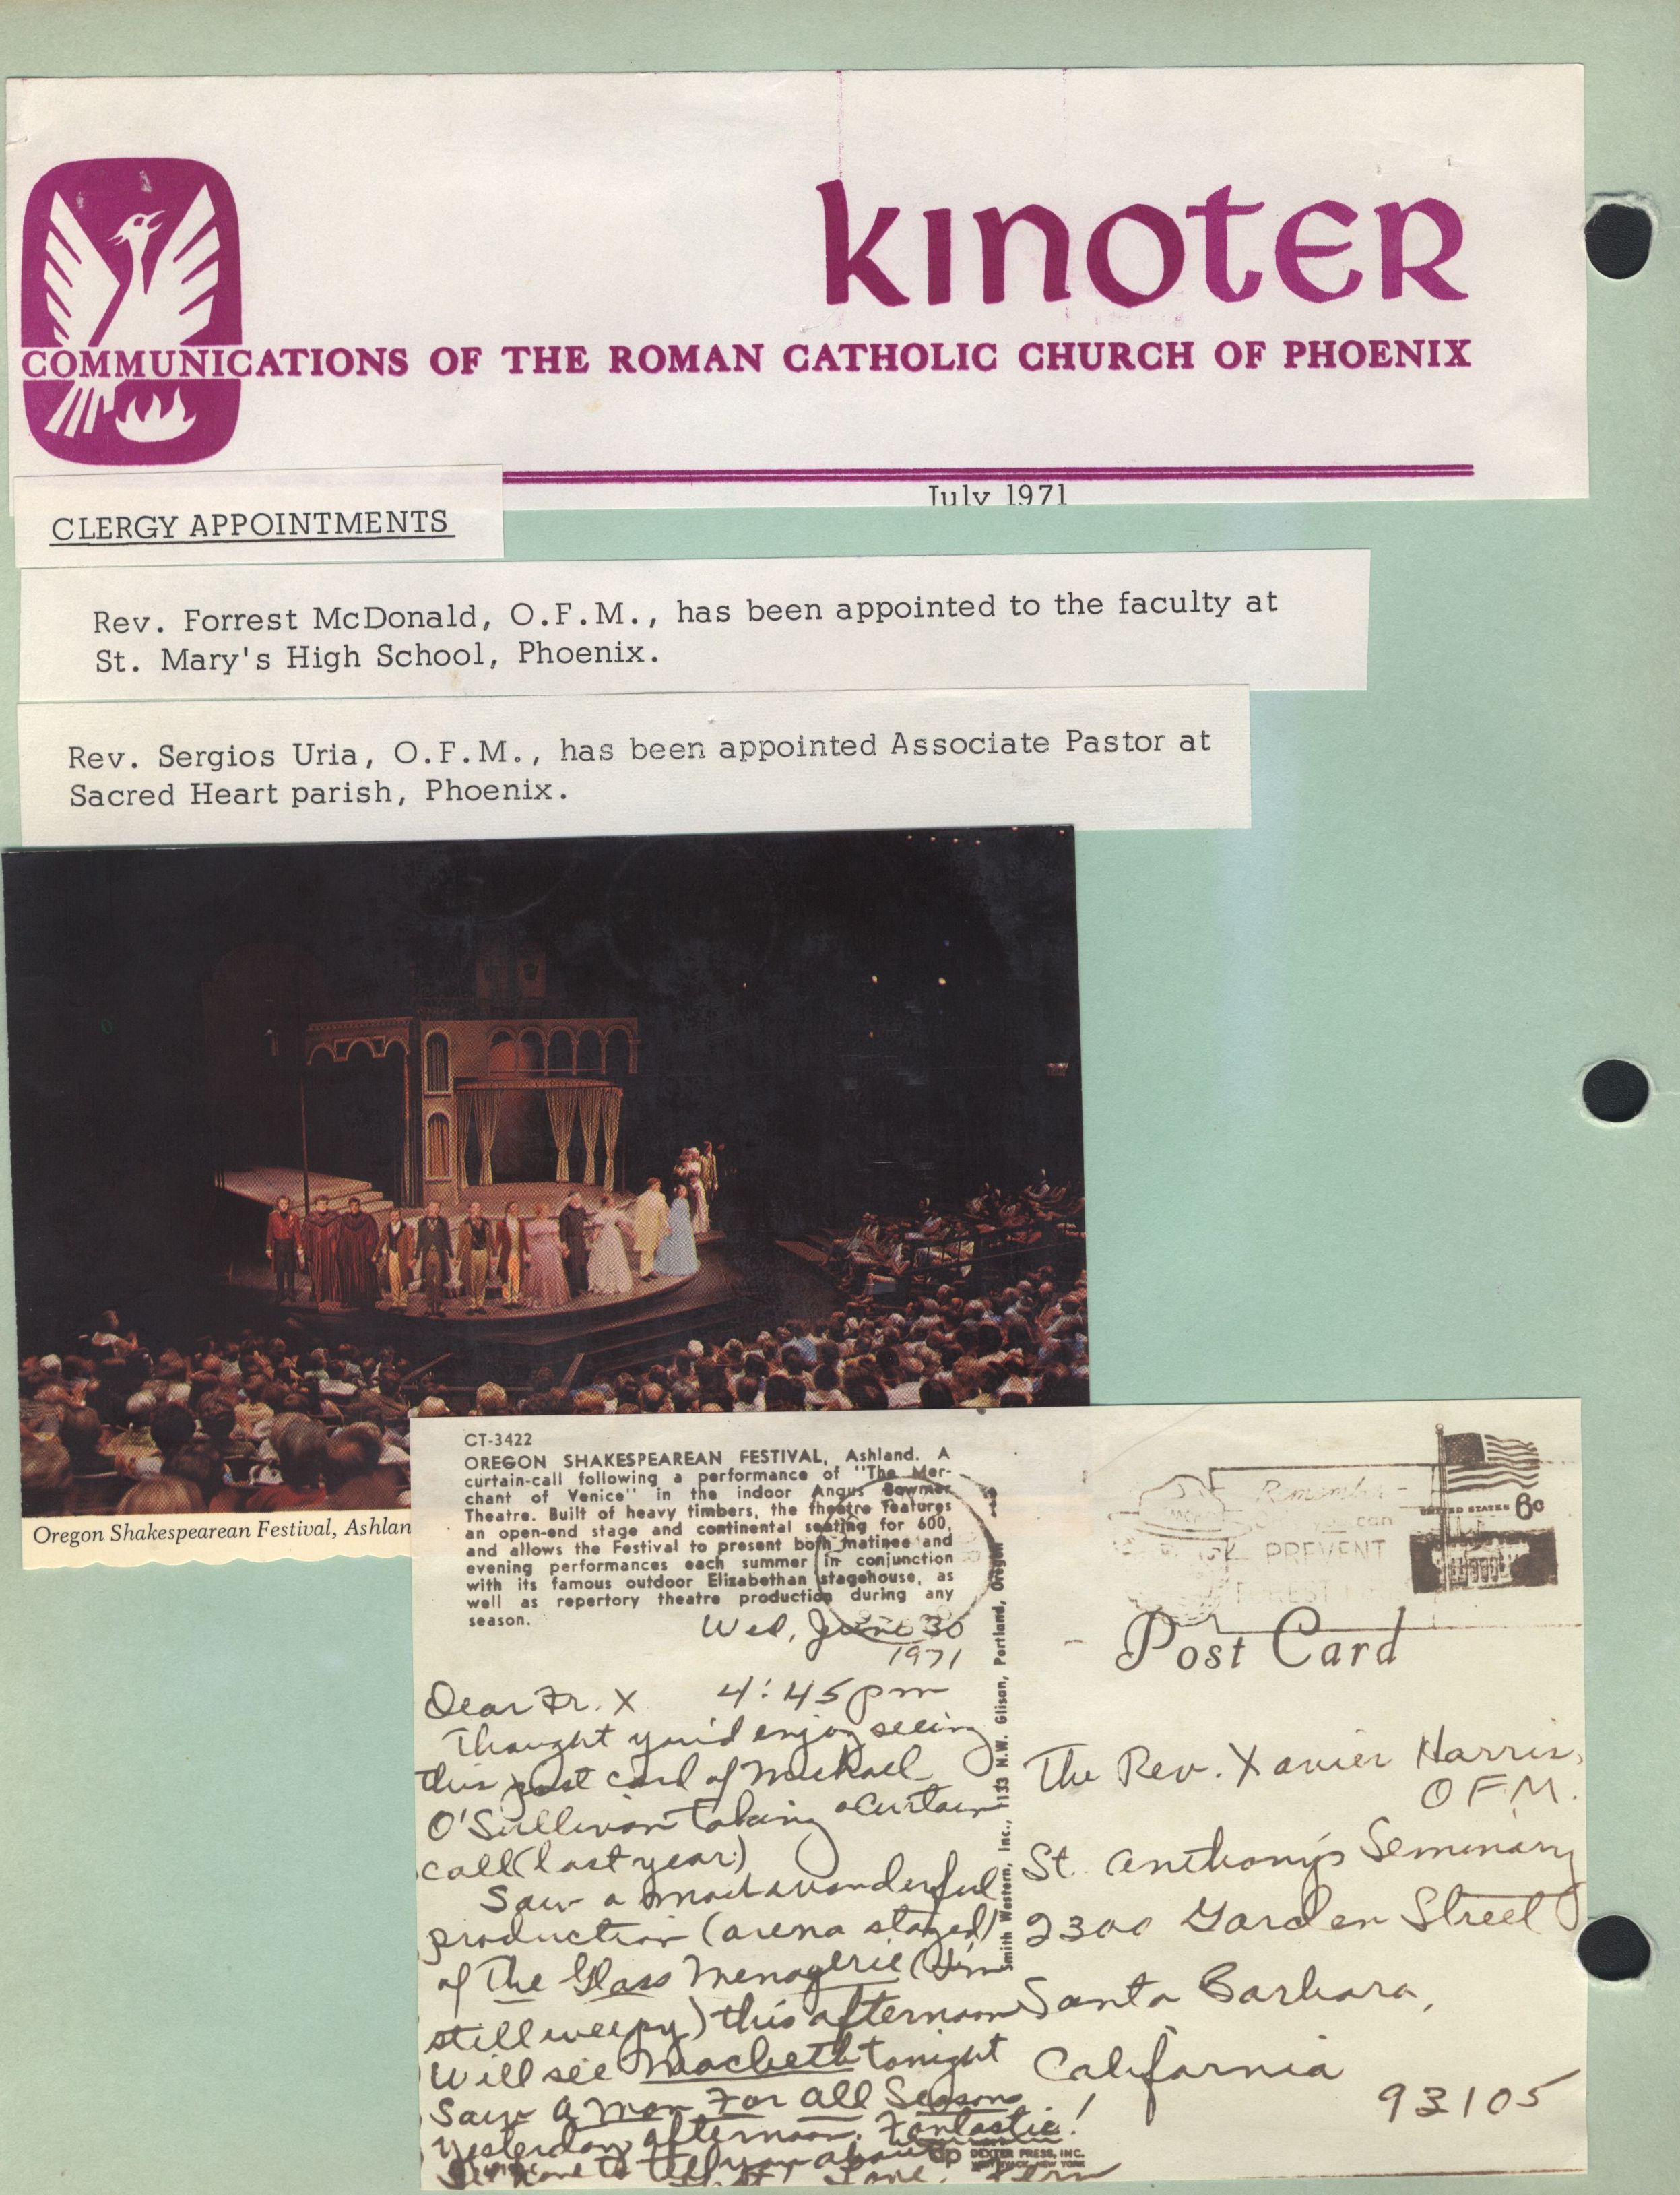 kinoter
COMMUNICATIONS OF THE ROMAN CATHOLIC CHURCH OF PHOENIX
July 1971
CLERGY APPOINTMENTS
Rev. Forrest McDonald, O.F.M., has been appointed to the faculty at
St. Mary's High School, Phoenix.
Rev. Sergios Uria, O.F.M., has been appointed Associate Pastor at
Sacred Heart parish, Phoenix.
Oregon Shakespearean Festival, Ashlan
CT-3422
OREGON SHAKESPEAREAN FESTIVAL, Ashland. A
curtain-call following a performance of "The Mer-
chant of Venice" in the indoor Angus Bowmer
Theatre. Built of heavy timbers, the theatre features
an open-end stage and continental seating for 600,
and allows the Festival to present both matinee and
evening performances each summer in conjunction
with its famous outdoor Elizabethan stagehouse, as
well as repertory theatre production during any
season.
Wed, June 30
1971
4:45pm
Dear Fr. X
Thought you'd enjoy seeing
this post card of Michael
O'Sullivan taking a curtain
call (last year)
Saw a most wonderful
production (arena staged)
of The Glass Menagerie (I'm
still weepy) this afternoon
Will see Macbeth tonight
Saw A Man For All Seasons
yesterday afternoon. Fantastic!
to tell you about
that! Love,
Smith Western, Inc., 133 N.W. Glisan, Portland, Oregon
DEXTER PRESS, INC.
WEST NYACK, NEW YORK
Remember-
you can
PREVENT
FOREST
UNITED STATES 6c
Post Card
The Rev. Xavier Harris,
OFM.
St. Anthony's Seminary
2300 Garden Street
Santa Barbara,
California
93105